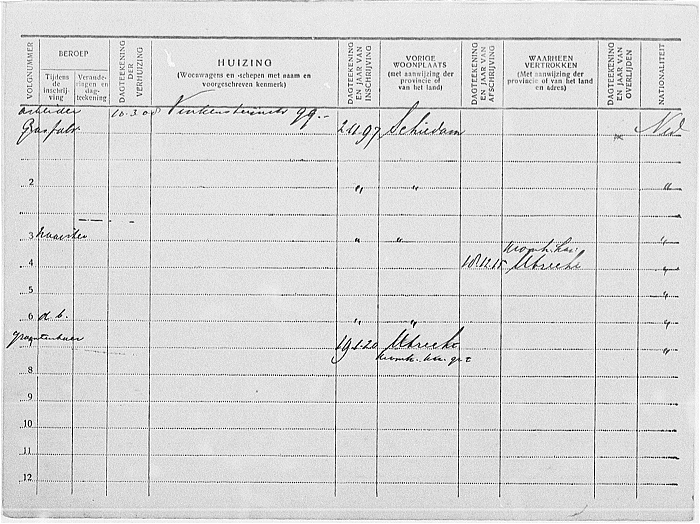 VOLGNUMMER
BEROEP
Tijdens de inschrijving
Veranderingen en dagteekening
DAGTEEKENING DER VERHUIZING
HUIZING
(Woonwagens en -schepen met naam en voorgeschreven kenmerk)
DAGTEEKENING EN JAAR VAN INSCHRIJVING
VORIGE WOONPLAATS
(met aanwijzing der provincie of van het land)
DAGTEEKENING EN JAAR VAN AFSCHRIJVING
WAARHEEN VERTROKKEN
(Met aanwijzing der provincie of van het land en adres)
DAGTEEKENING EN JAAR VAN OVERLIJDEN
NATIONALITEIT
arbeider 10.3.08 99.- 2.11.97 Schiedam Ned
Gasfabr.
2 " " "
3 " " "
4 18.12.15 Utrecht "
5 "
6 d.b. " " "
7 19.1.20 Utrecht "
8
9
10
11
12